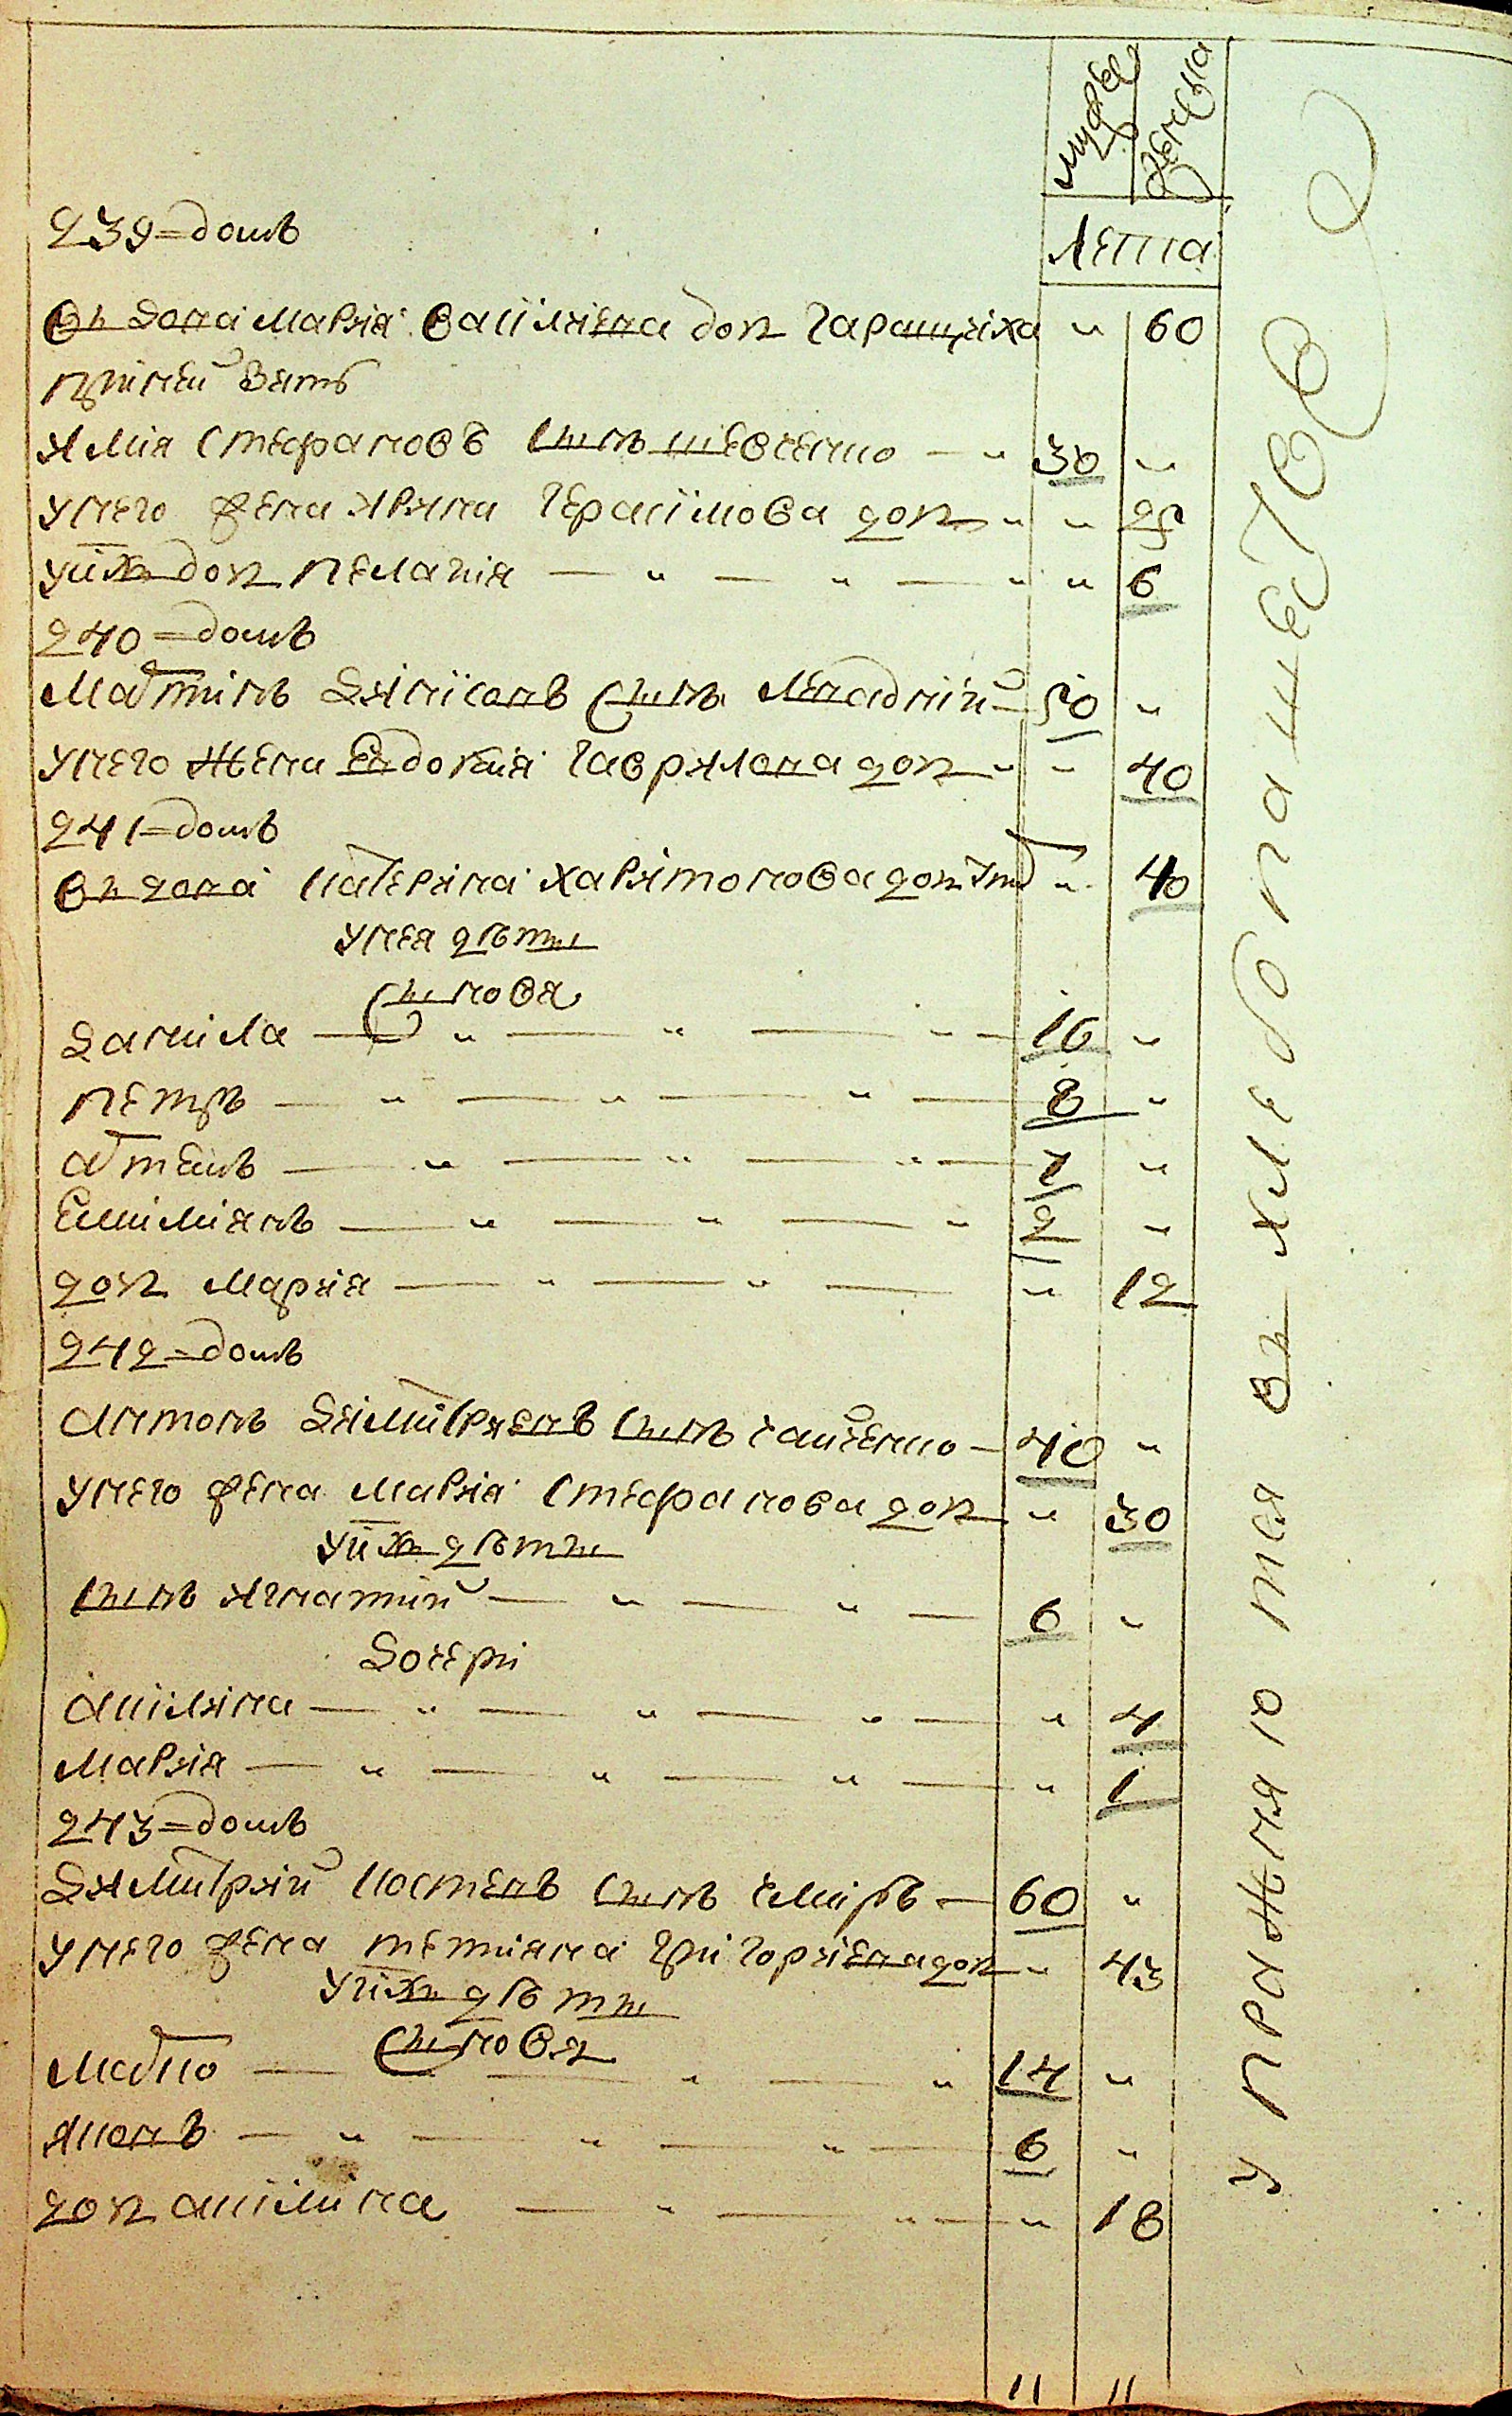 мужеска женска
лета
239=домъ
Вдова Мария Василиева доч Гаращиха " 60
при ней зять
Илия Стефановъ сынъ Шевченко — " 30 "
у него жена Ирина Герасимова доч " " 25
у них доч Пелагия — " — " — " " 6
240=домъ
Мартинъ Денисовъ сынъ 50 "
у него жена Евдокия Гаврилова доч " " 40
241=домъ
Вдова Катерина Харитонова доч " 40
у нея дѣти
сынове
Данила — " — " — " — 16 "
Петръ — " — " — " — 8 "
Артемъ — " — " — " — 7 "
Емилиянъ — " — " — " 2 "
доч Мария — " — " — " 12
242=домъ
Антонъ Димитриевъ сынъ Сайченко — 40 "
у него жена Мария Стефанова доч " 30
у них дѣти
сынъ Игнатий — " — " — 6 "
дочери
Акилина — " — " — " — " 4
Мария — " — " — " — " 1
243=домъ
Димитрий Костевъ сынъ Чмиръ — 60 "
у него жена Тетияна Григориева доч — " 43
у них дѣти
сынове
Марко — — " — " 14 "
Яковъ — " — " — " — 6 "
доч Акилина — " — " — " 18
11 11
упражняются в хлебопашестве